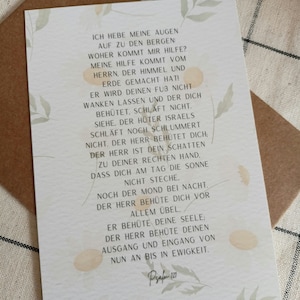 ICH HEBE MEINE AUGEN
AUF ZU DEN BERGEN
WOHER KOMMT MIR HILFE?
MEINE HILFE KOMMT VOM
HERRN, DER HIMMEL UND
ERDE GEMACHT HAT!
ER WIRD DEINEN FUẞ NICHT
WANKEN LASSEN UND DER DICH
BEHÜTET, SCHLÄFT NICHT.
SIEHE, DER HÜTER ISRAELS
SCHLÄFT NOCH SCHLUMMERT
NICHT. DER HERR BEHÜTET DICH;
DER HERR IST DEIN SCHATTEN
ZU DEINER RECHTEN HAND,
DASS DICH AM TAG DIE SONNE
NICHT STECHE,
NOCH DER MOND BEI NACHT.
DER HERR BEHÜTE DICH VOR
ALLEM ÜBEL,
ER BEHÜTE DEINE SEELE;
DER HERR BEHÜTE DEINEN
AUSGANG UND EINGANG VON
NUN AN BIS IN EWIGKEIT.
Psalm 121